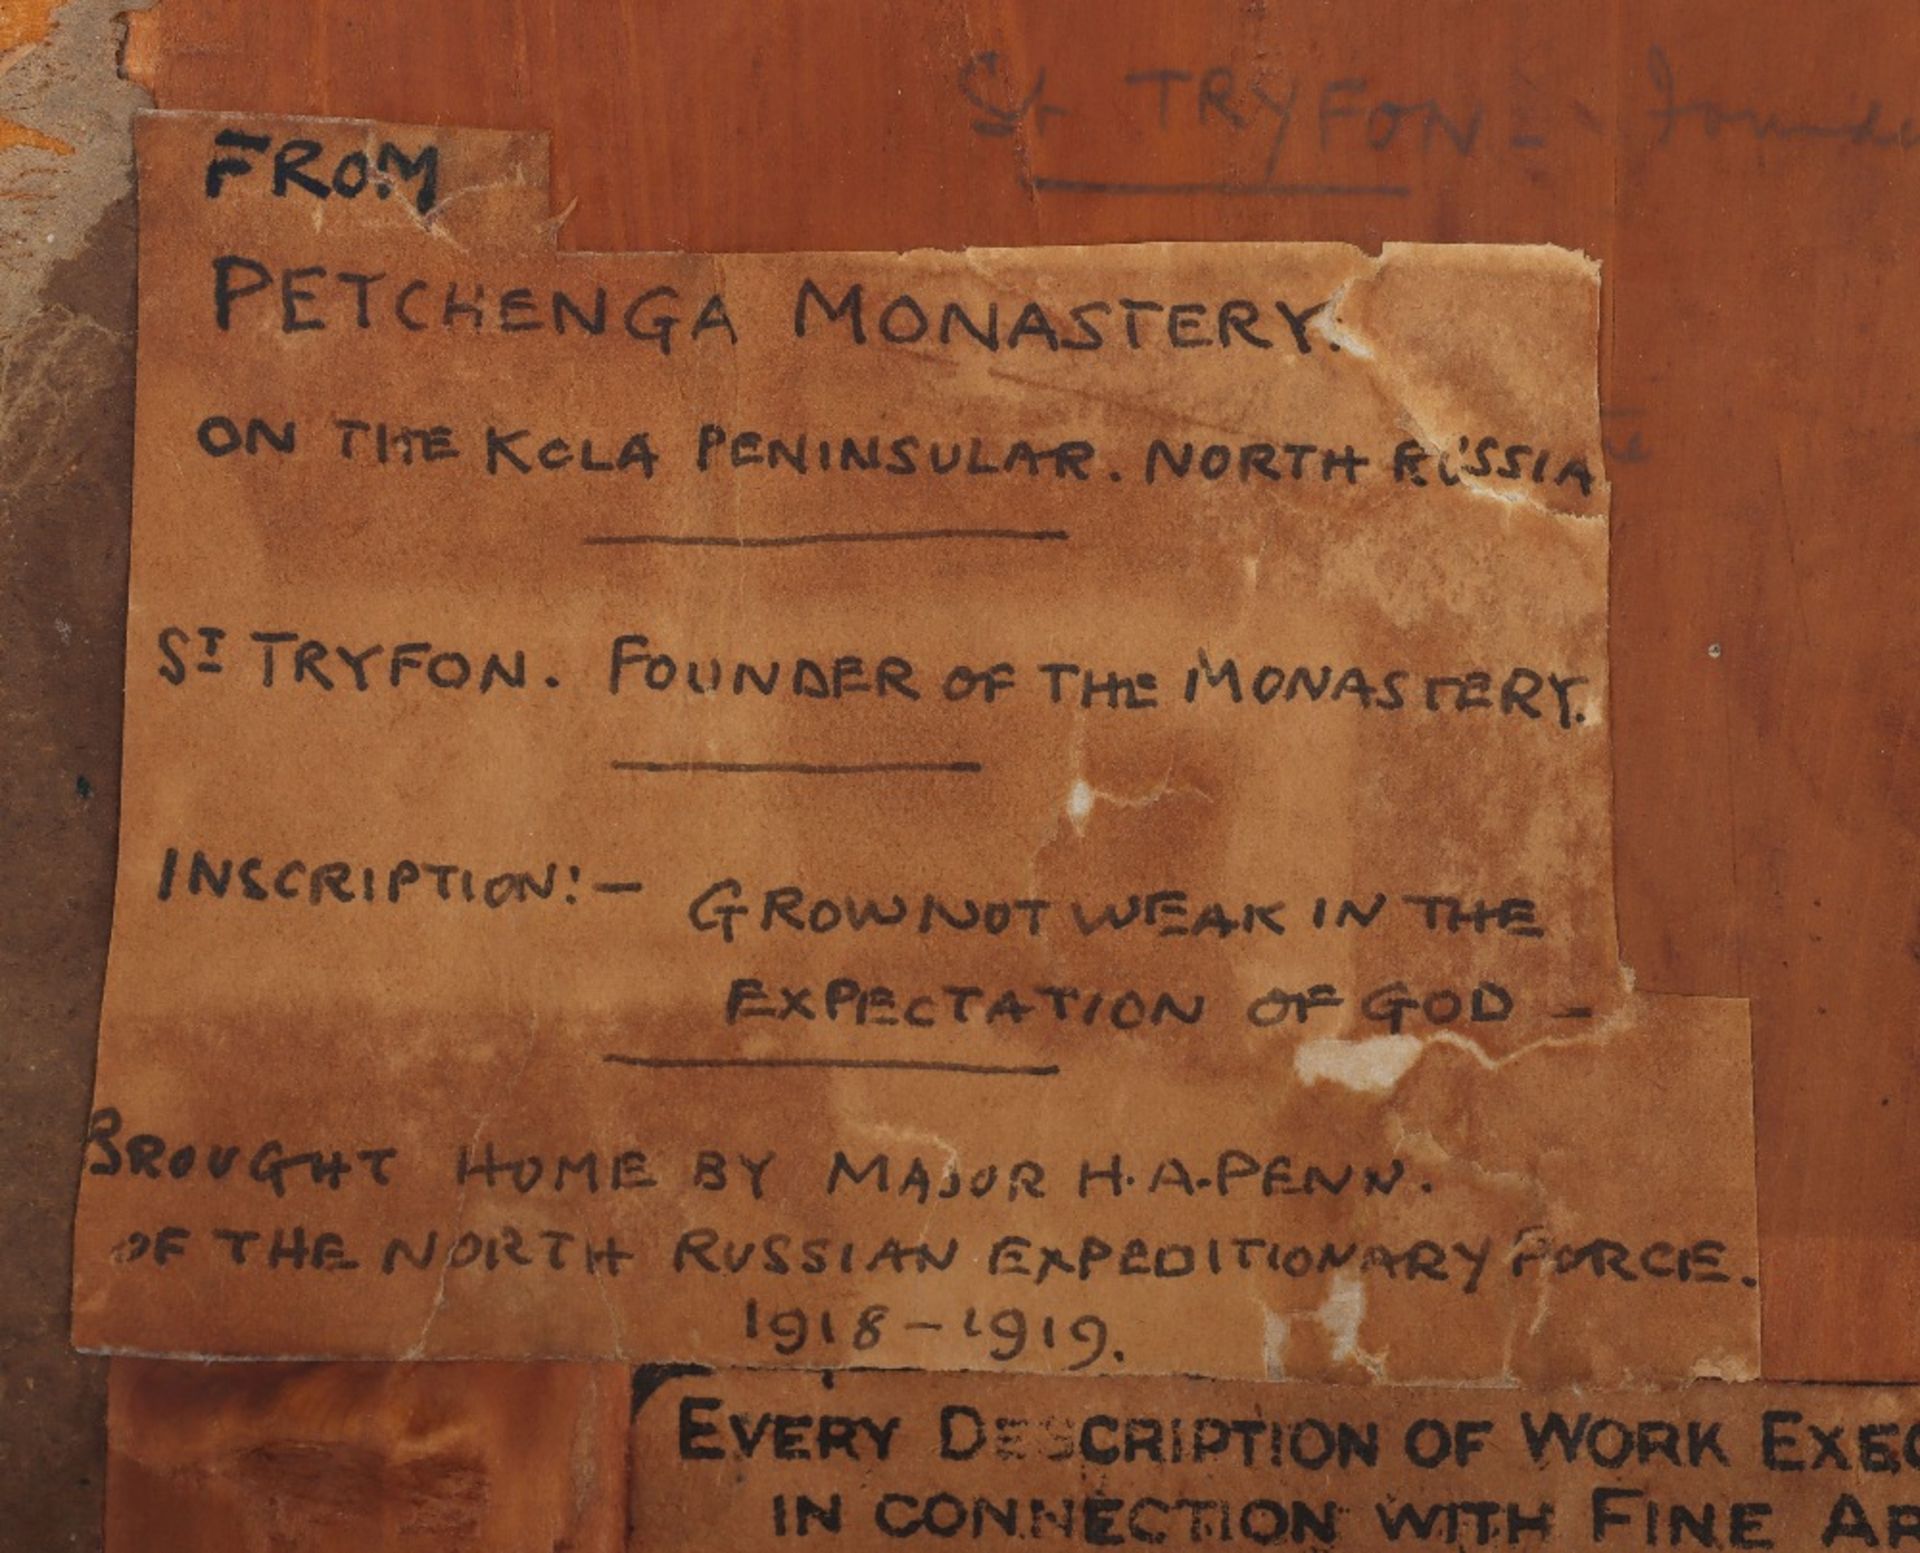 St TRYFON - Founde
FROM
PETCHENGA MONASTERY.
ON THE KOLA PENINSULAR. NORTH RUSSIA
ST TRYFON. FOUNDER OF THE MONASTERY.
INSCRIPTION:— GROW NOT WEAK IN THE
EXPECTATION OF GOD —
BROUGHT HOME BY MAJOR H.A.PENN.
OF THE NORTH RUSSIAN EXPEDITIONARY FORCE.
1918-1919.
EVERY DESCRIPTION OF WORK EXEC
IN CONNECTION WITH FINE AR